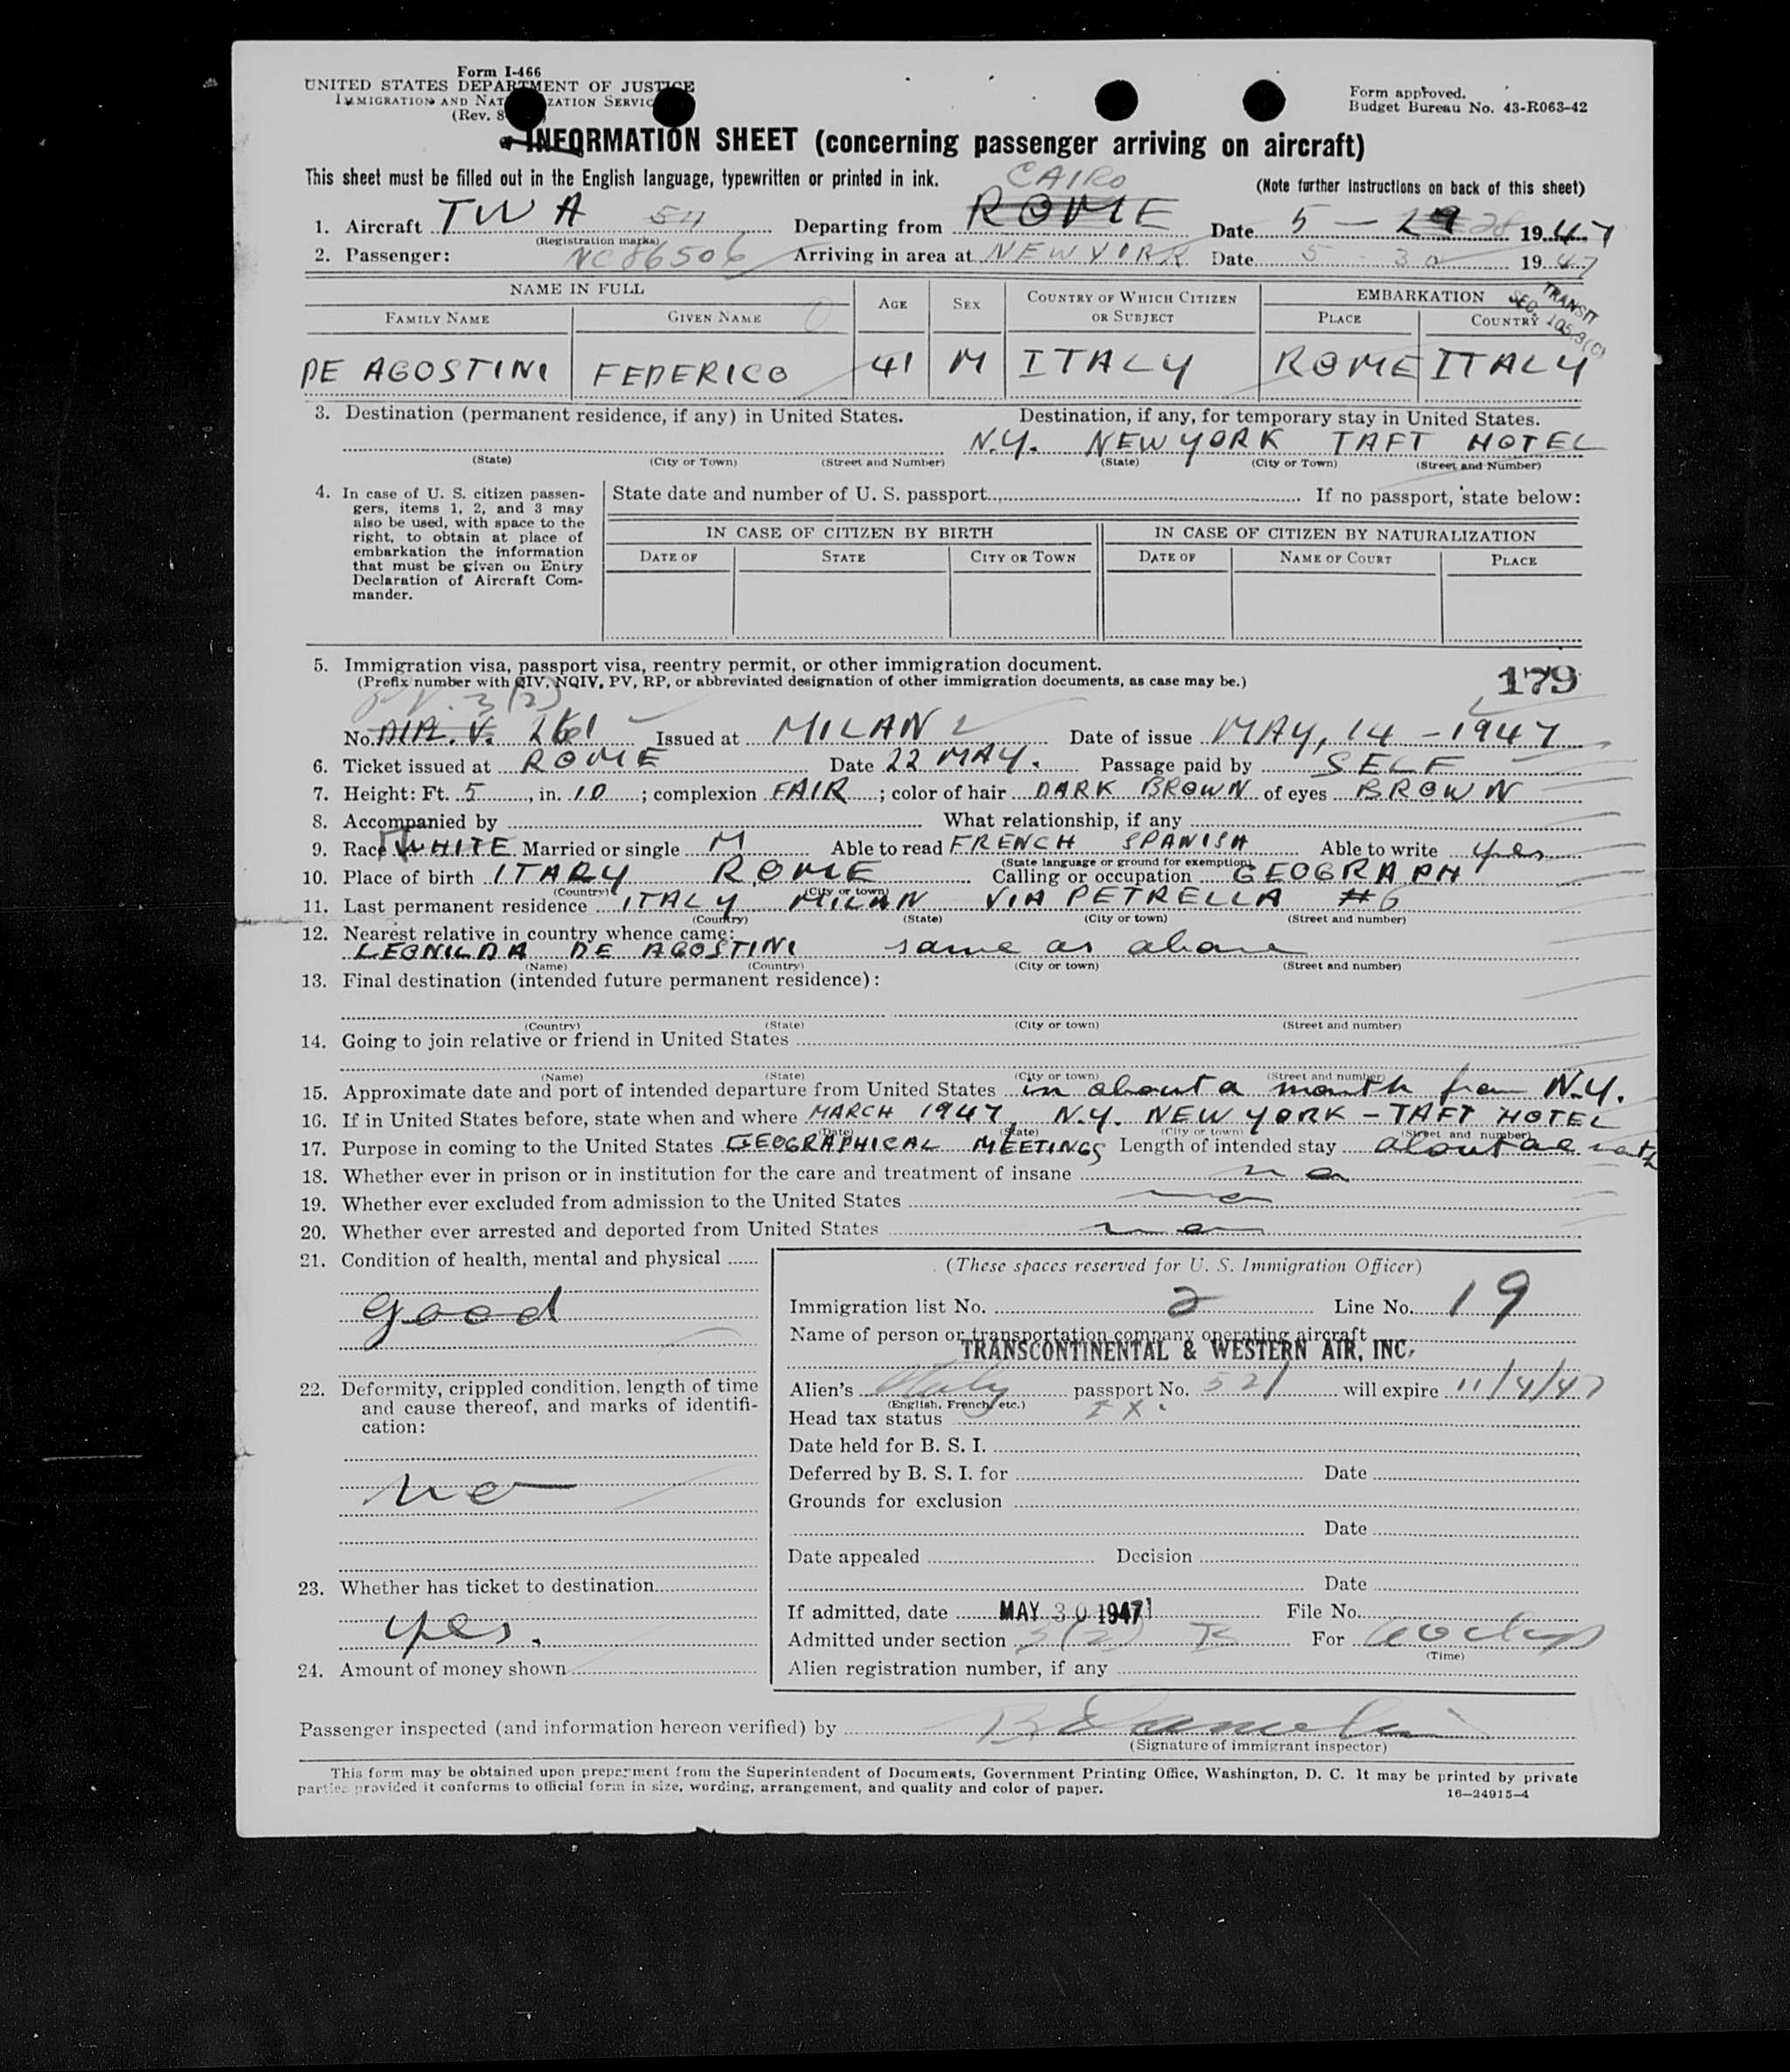 Form I-466
UNITED STATES DEPARTMENT OF JUSTICE
IMMIGRATION AND NAT ZATION SERVIC
(Rev. 8-
Form approved.
Budget Bureau No. 43-R063-42
INFORMATION SHEET (concerning passenger arriving on aircraft)
This sheet must be filled out in the English language, typewritten or printed in ink.
(Note further instructions on back of this sheet)
CAIRO
1. Aircraft TWA Departing from ROME Date 5 - 29 28 1947
(Registration marks)
2. Passenger: NC 86506 Arriving in area at NEW YORK Date 5 - 30 1947
NAME IN FULL
FAMILY NAME GIVEN NAME AGE SEX COUNTRY OF WHICH CITIZEN OR SUBJECT EMBARKATION PLACE COUNTRY
TRANSIT
SEC. 105.3(C)
DE AGOSTINI FEDERICO 41 M ITALY ROME ITALY
3. Destination (permanent residence, if any) in United States. Destination, if any, for temporary stay in United States.
N.Y. NEW YORK TAFT HOTEL
(State) (City or Town) (Street and Number) (State) (City or Town) (Street and Number)
4. In case of U. S. citizen passen-
gers, items 1, 2, and 3 may
also be used, with space to the
right, to obtain at place of
embarkation the information
that must be given on Entry
Declaration of Aircraft Com-
mander.
State date and number of U. S. passport If no passport, state below:
IN CASE OF CITIZEN BY BIRTH IN CASE OF CITIZEN BY NATURALIZATION
DATE OF STATE CITY OR TOWN DATE OF NAME OF COURT PLACE
5. Immigration visa, passport visa, reentry permit, or other immigration document.
(Prefix number with QIV, NQIV, PV, RP, or abbreviated designation of other immigration documents, as case may be.)
179
PV. 3(2)
No. DIP. V. 261 Issued at MILAN Date of issue MAY, 14 - 1947
6. Ticket issued at ROME Date 22 MAY. Passage paid by SELF
7. Height: Ft. 5, in. 10; complexion FAIR; color of hair DARK BROWN of eyes BROWN
8. Accompanied by What relationship, if any
9. Race WHITE Married or single M Able to read FRENCH SPANISH Able to write yes
(State language or ground for exemption)
10. Place of birth ITALY ROME Calling or occupation GEOGRAPH
(Country) (City or town)
11. Last permanent residence ITALY MILAN VIA PETRELLA #6
(Country) (State) (City or town) (Street and number)
12. Nearest relative in country whence came:
LEONILDA DE AGOSTINI same as above
(Name) (Country) (City or town) (Street and number)
13. Final destination (intended future permanent residence):
(Country) (State) (City or town) (Street and number)
14. Going to join relative or friend in United States
(Name) (State) (City or town) (Street and number)
15. Approximate date and port of intended departure from United States in about a month from N.Y.
16. If in United States before, state when and where MARCH 1947, N.Y. NEW YORK - TAFT HOTEL
(Date) (State) (City or town) (Street and number)
17. Purpose in coming to the United States GEOGRAPHICAL MEETINGS Length of intended stay about a month
18. Whether ever in prison or in institution for the care and treatment of insane no
19. Whether ever excluded from admission to the United States no
20. Whether ever arrested and deported from United States no
21. Condition of health, mental and physical
good
22. Deformity, crippled condition, length of time
and cause thereof, and marks of identifi-
cation:
no
23. Whether has ticket to destination
yes.
24. Amount of money shown
(These spaces reserved for U. S. Immigration Officer)
Immigration list No. 2 Line No. 19
Name of person or transportation company operating aircraft
TRANSCONTINENTAL & WESTERN AIR, INC.
Alien's Italy passport No. 521 will expire 11/4/47
(English, French, etc.)
Head tax status EX.
Date held for B. S. I.
Deferred by B. S. I. for Date
Grounds for exclusion
Date
Date appealed Decision
Date
If admitted, date MAY 30 1947 File No.
Admitted under section 3(2) For 60 days
(Time)
Alien registration number, if any
Passenger inspected (and information hereon verified) by
(Signature of immigrant inspector)
This form may be obtained upon prepayment from the Superintendent of Documents, Government Printing Office, Washington, D. C. It may be printed by private
parties provided it conforms to official form in size, wording, arrangement, and quality and color of paper.
16—24915-4